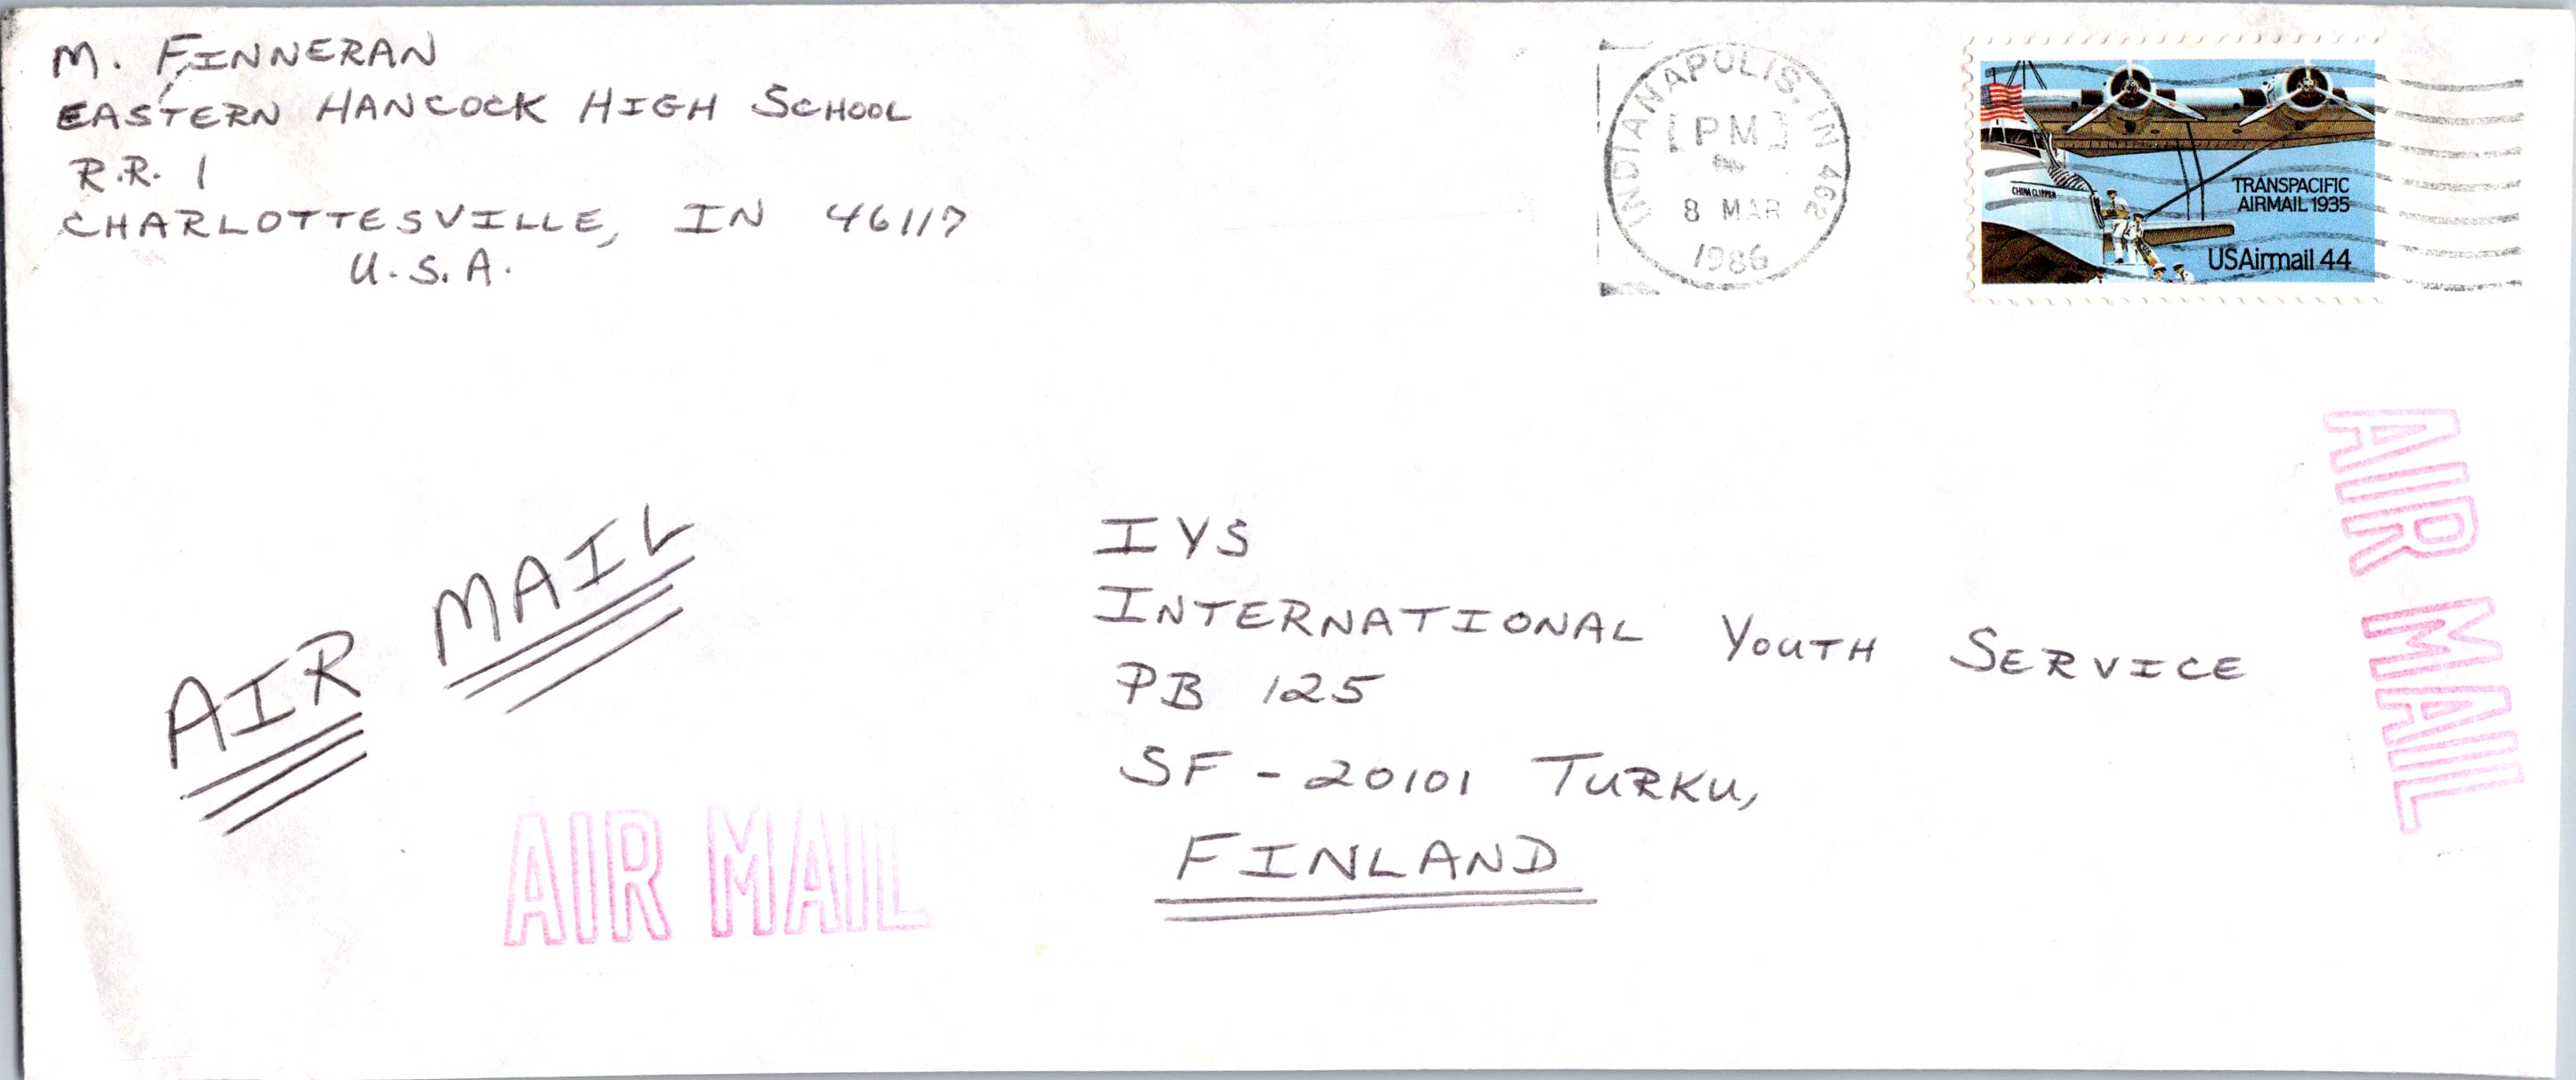 M. FINNERAN
EASTERN HANCOCK HIGH SCHOOL
R.R. 1
CHARLOTTESVILLE, IN 46117
U.S.A.
INDIANAPOLIS, IN 462
PM
8 MAR
1986
CHINA CLIPPER
TRANSPACIFIC
AIRMAIL 1935
USAirmail 44
AIR MAIL
AIR MAIL
IYS
INTERNATIONAL YOUTH SERVICE
PB 125
SF - 20101 TURKU,
FINLAND
AIR MAIL